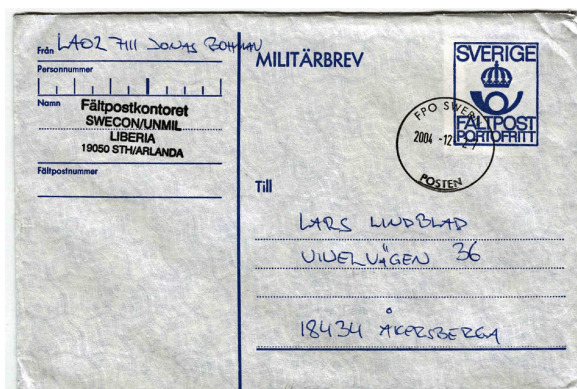 Från LA02 7111 JONAS BOHMAN
Personnummer
Namn
Fältpostkontoret
SWECON/UNMIL
LIBERIA
19050 STH/ARLANDA
Fältpostnummer
MILITÄRBREV
SVERIGE
FÄLTPOST
PORTOFRITT
FPO SWE
2004 -12
POSTEN
Till
LARS LINDBLAD
VINELVÄGEN 36
18434 ÅKERSBERGA